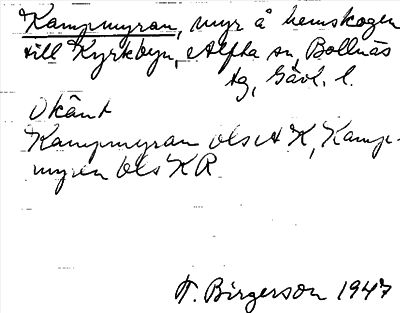 Kampmyran, myr å hemskogen
till Kyrkbyn, Alfta sn, Bollnäs
tg, Gävl. l.
Okänt
Kampmyran ols AK, Kamp-
myren bls KR
T. Birgerson 1947